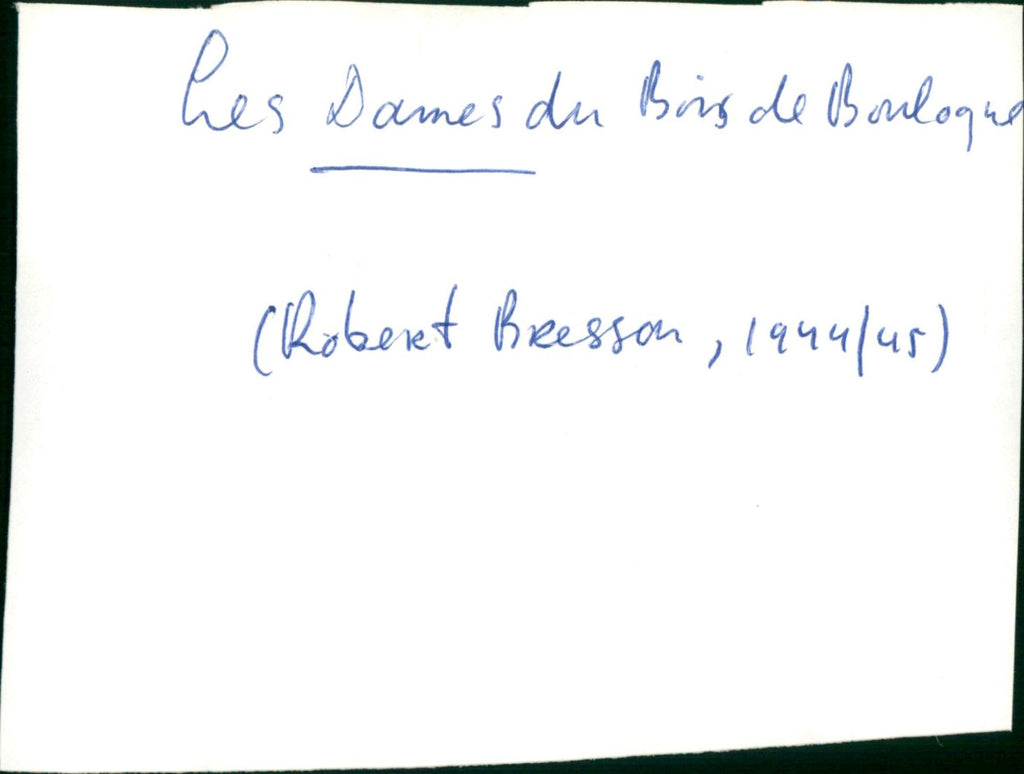 Les Dames du Bois de Boulogne
(Robert Bresson, 1944/45)